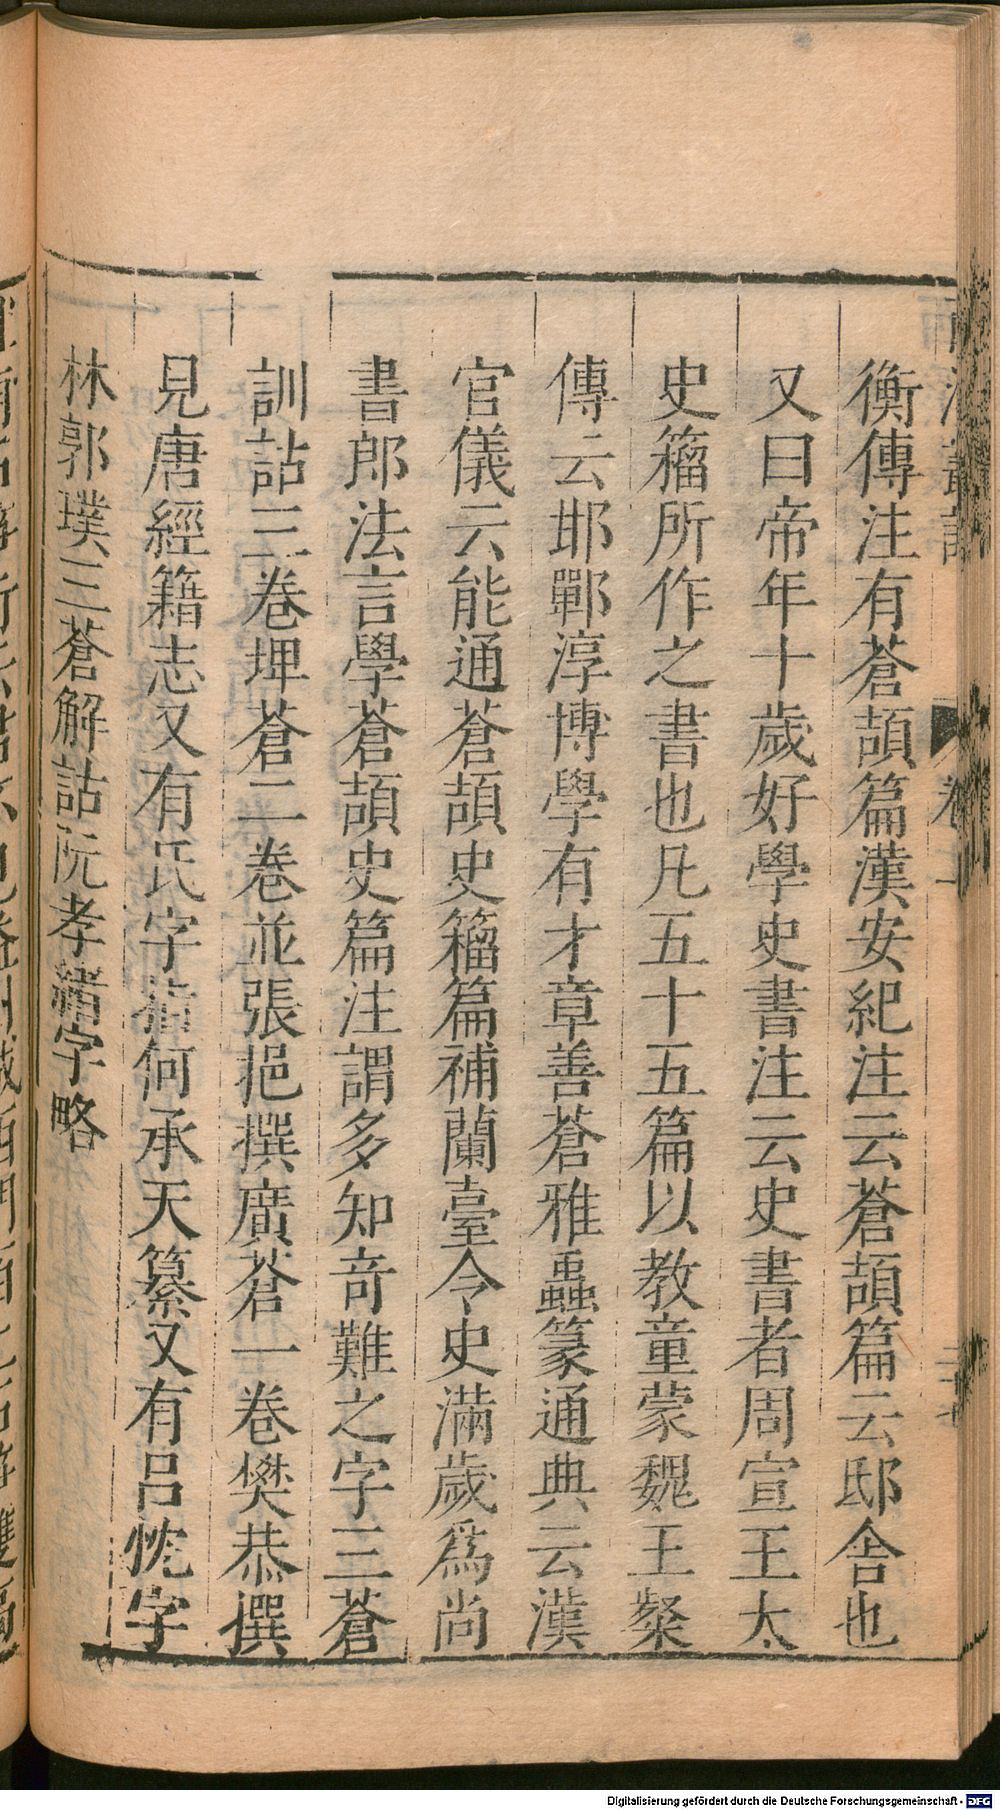 衡傳注有蒼頡篇漢安紀注云蒼頡篇云邸舍也
又曰帝年十歲好學史書注云史書者周宣王太
史籀所作之書也凡五十五篇以教童蒙魏王粲
傳云邯鄲淳博學有才章善蒼雅蟲篆通典云漢
官儀云能通蒼頡史籀篇補蘭臺令史滿歲爲尚
書郎法言學蒼頡史篇注謂多知奇難之字三蒼
訓詁三卷埤蒼二卷並張挹撰廣蒼一卷樊恭撰
見唐經籍志又有氏字指何承天纂又有呂忱字
林郭璞三蒼解詁阮孝緒字略
Digitalisierung gefördert durch die Deutsche Forschungsgemeinschaft - DFG